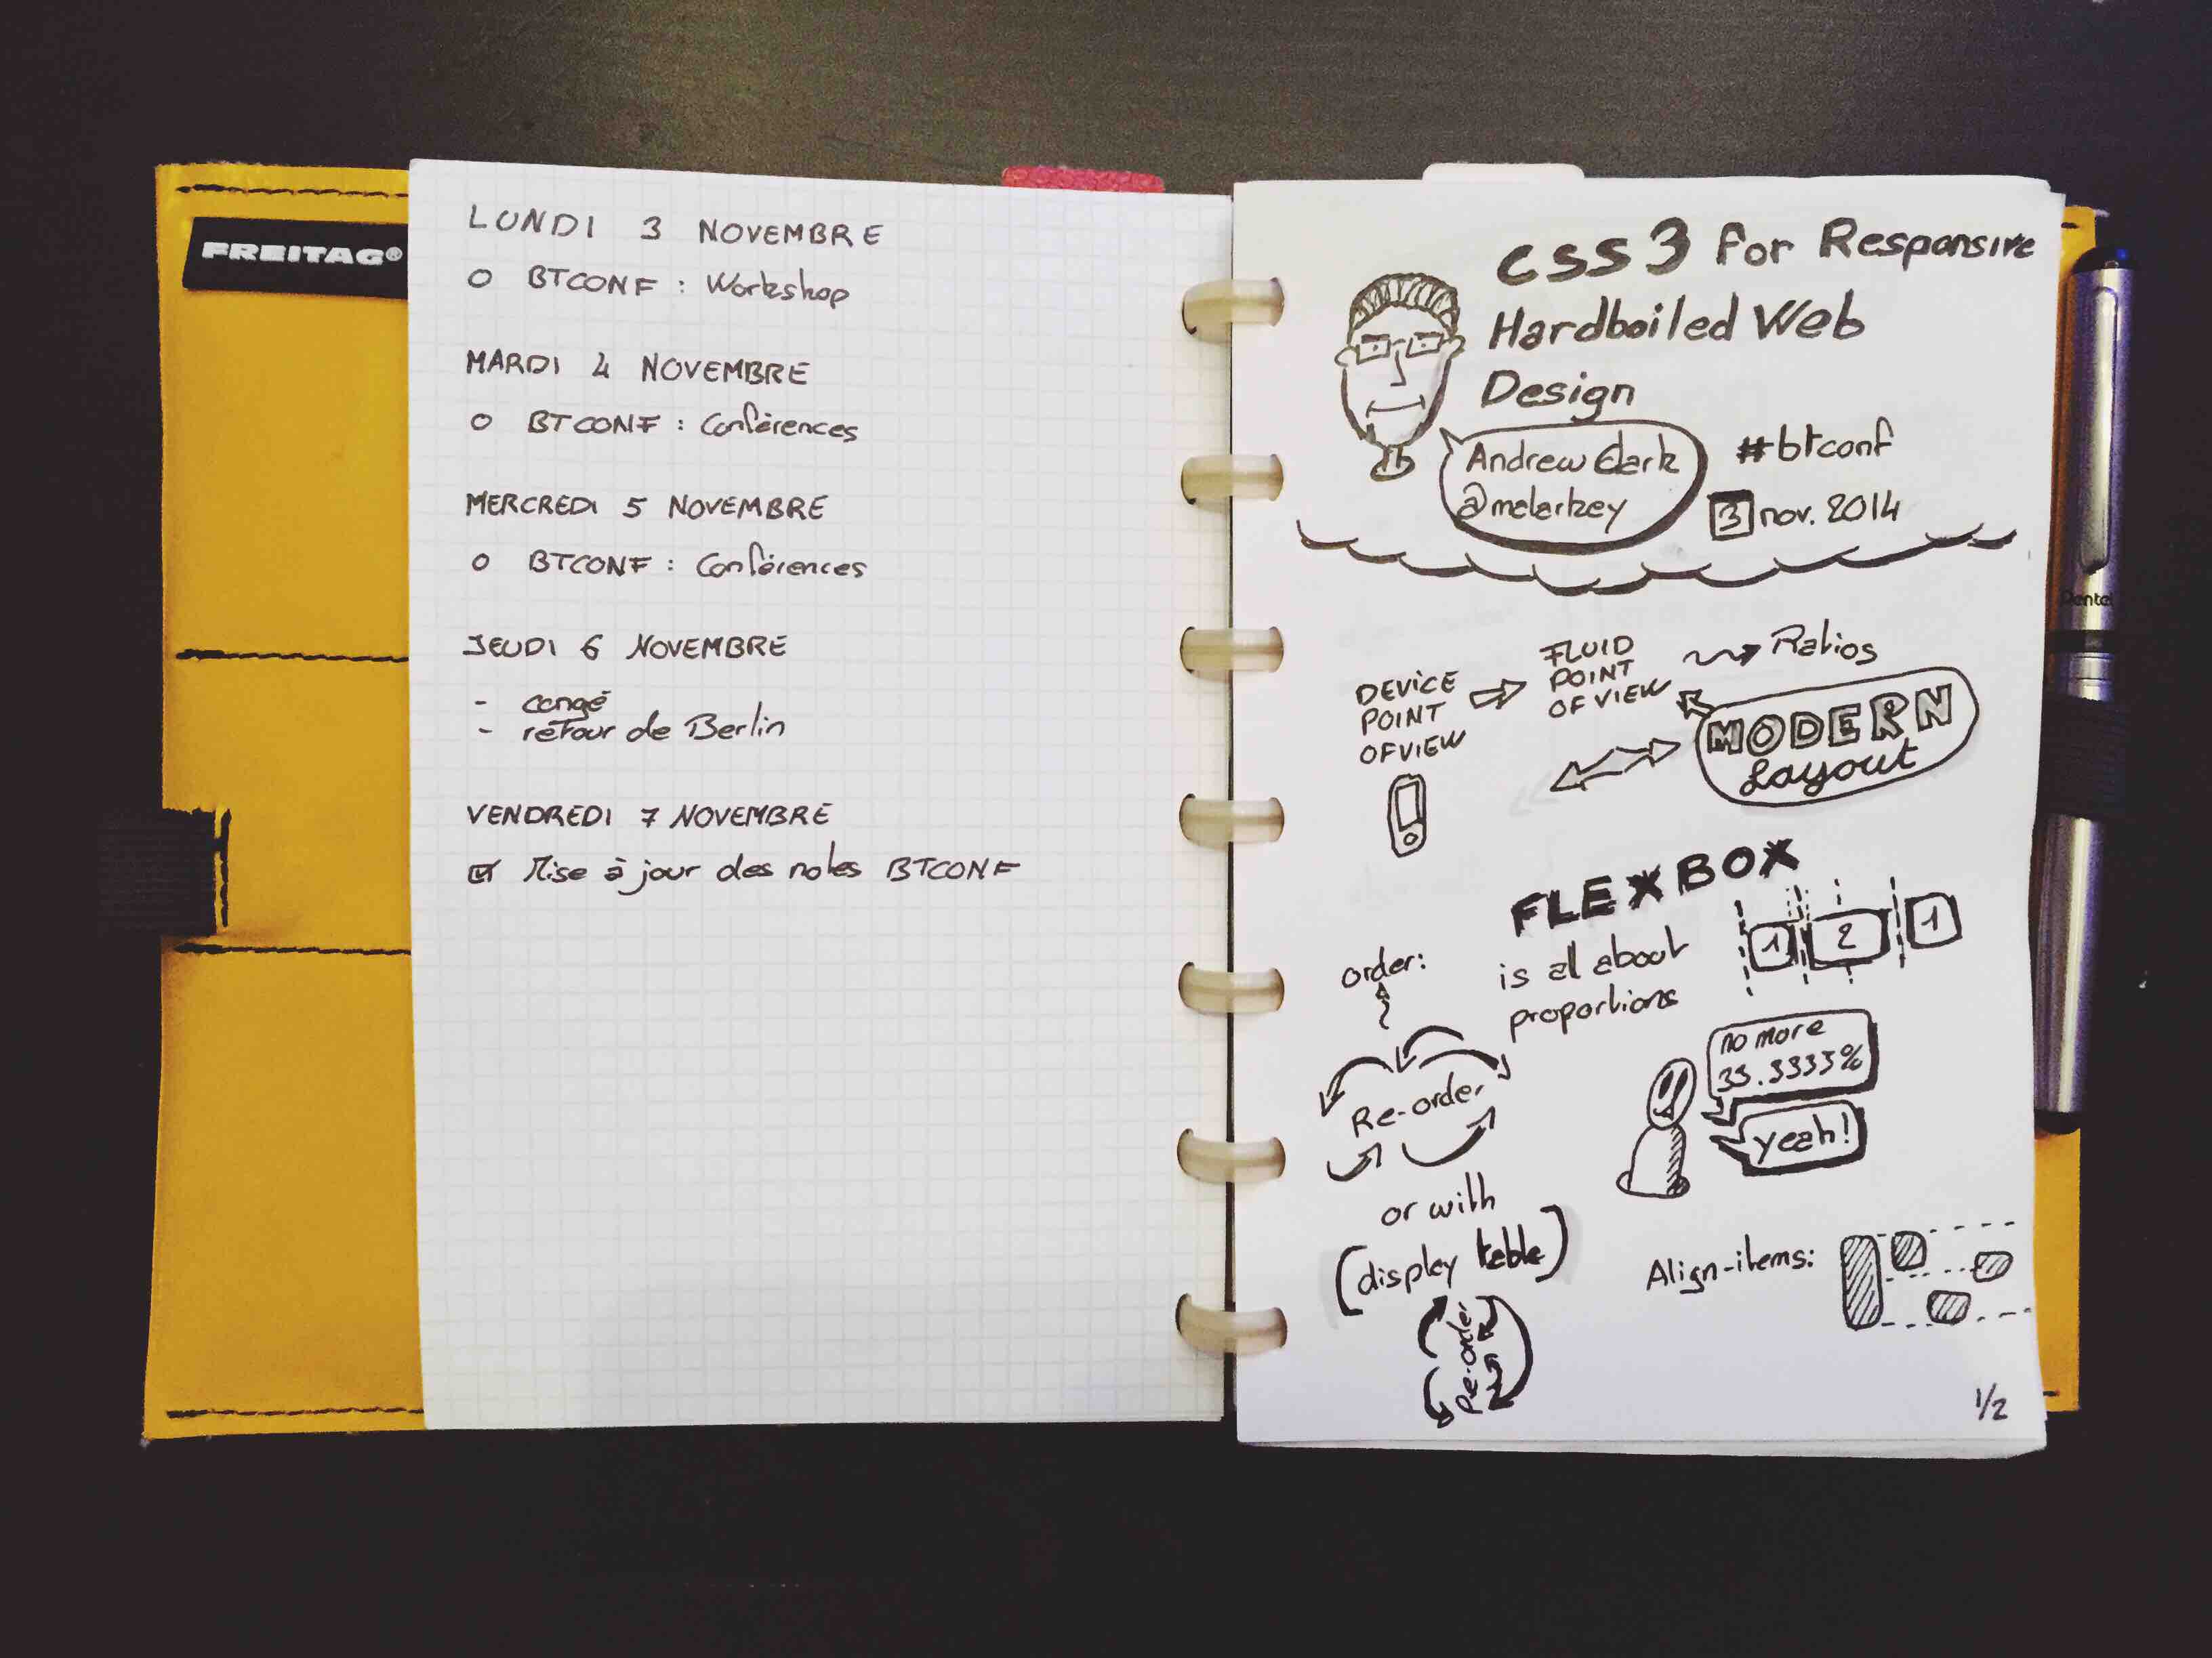 FREITAG®
LUNDI 3 NOVEMBRE
O BTCONF : Workshop
MARDI 4 NOVEMBRE
O BTCONF : Conférences
MERCREDI 5 NOVEMBRE
O BTCONF : Conférences
JEUDI 6 NOVEMBRE
- congé
- retour de Berlin
VENDREDI 7 NOVEMBRE
☑ Mise à jour des notes BTCONF
CSS3 For Responsive
Hardboiled Web
Design
Andrew Clark
@malarkey
#btconf
3 nov. 2014
DEVICE
POINT
OF VIEW
FLUID
POINT
OF VIEW
Ratios
MODERN
Layout
FLEXBOX
is al about
proportions
1 2 1
order:
Re-order
no more
33.3333%
yeah!
or with
(display table)
Re-order
Align-items:
1/2
Pentel